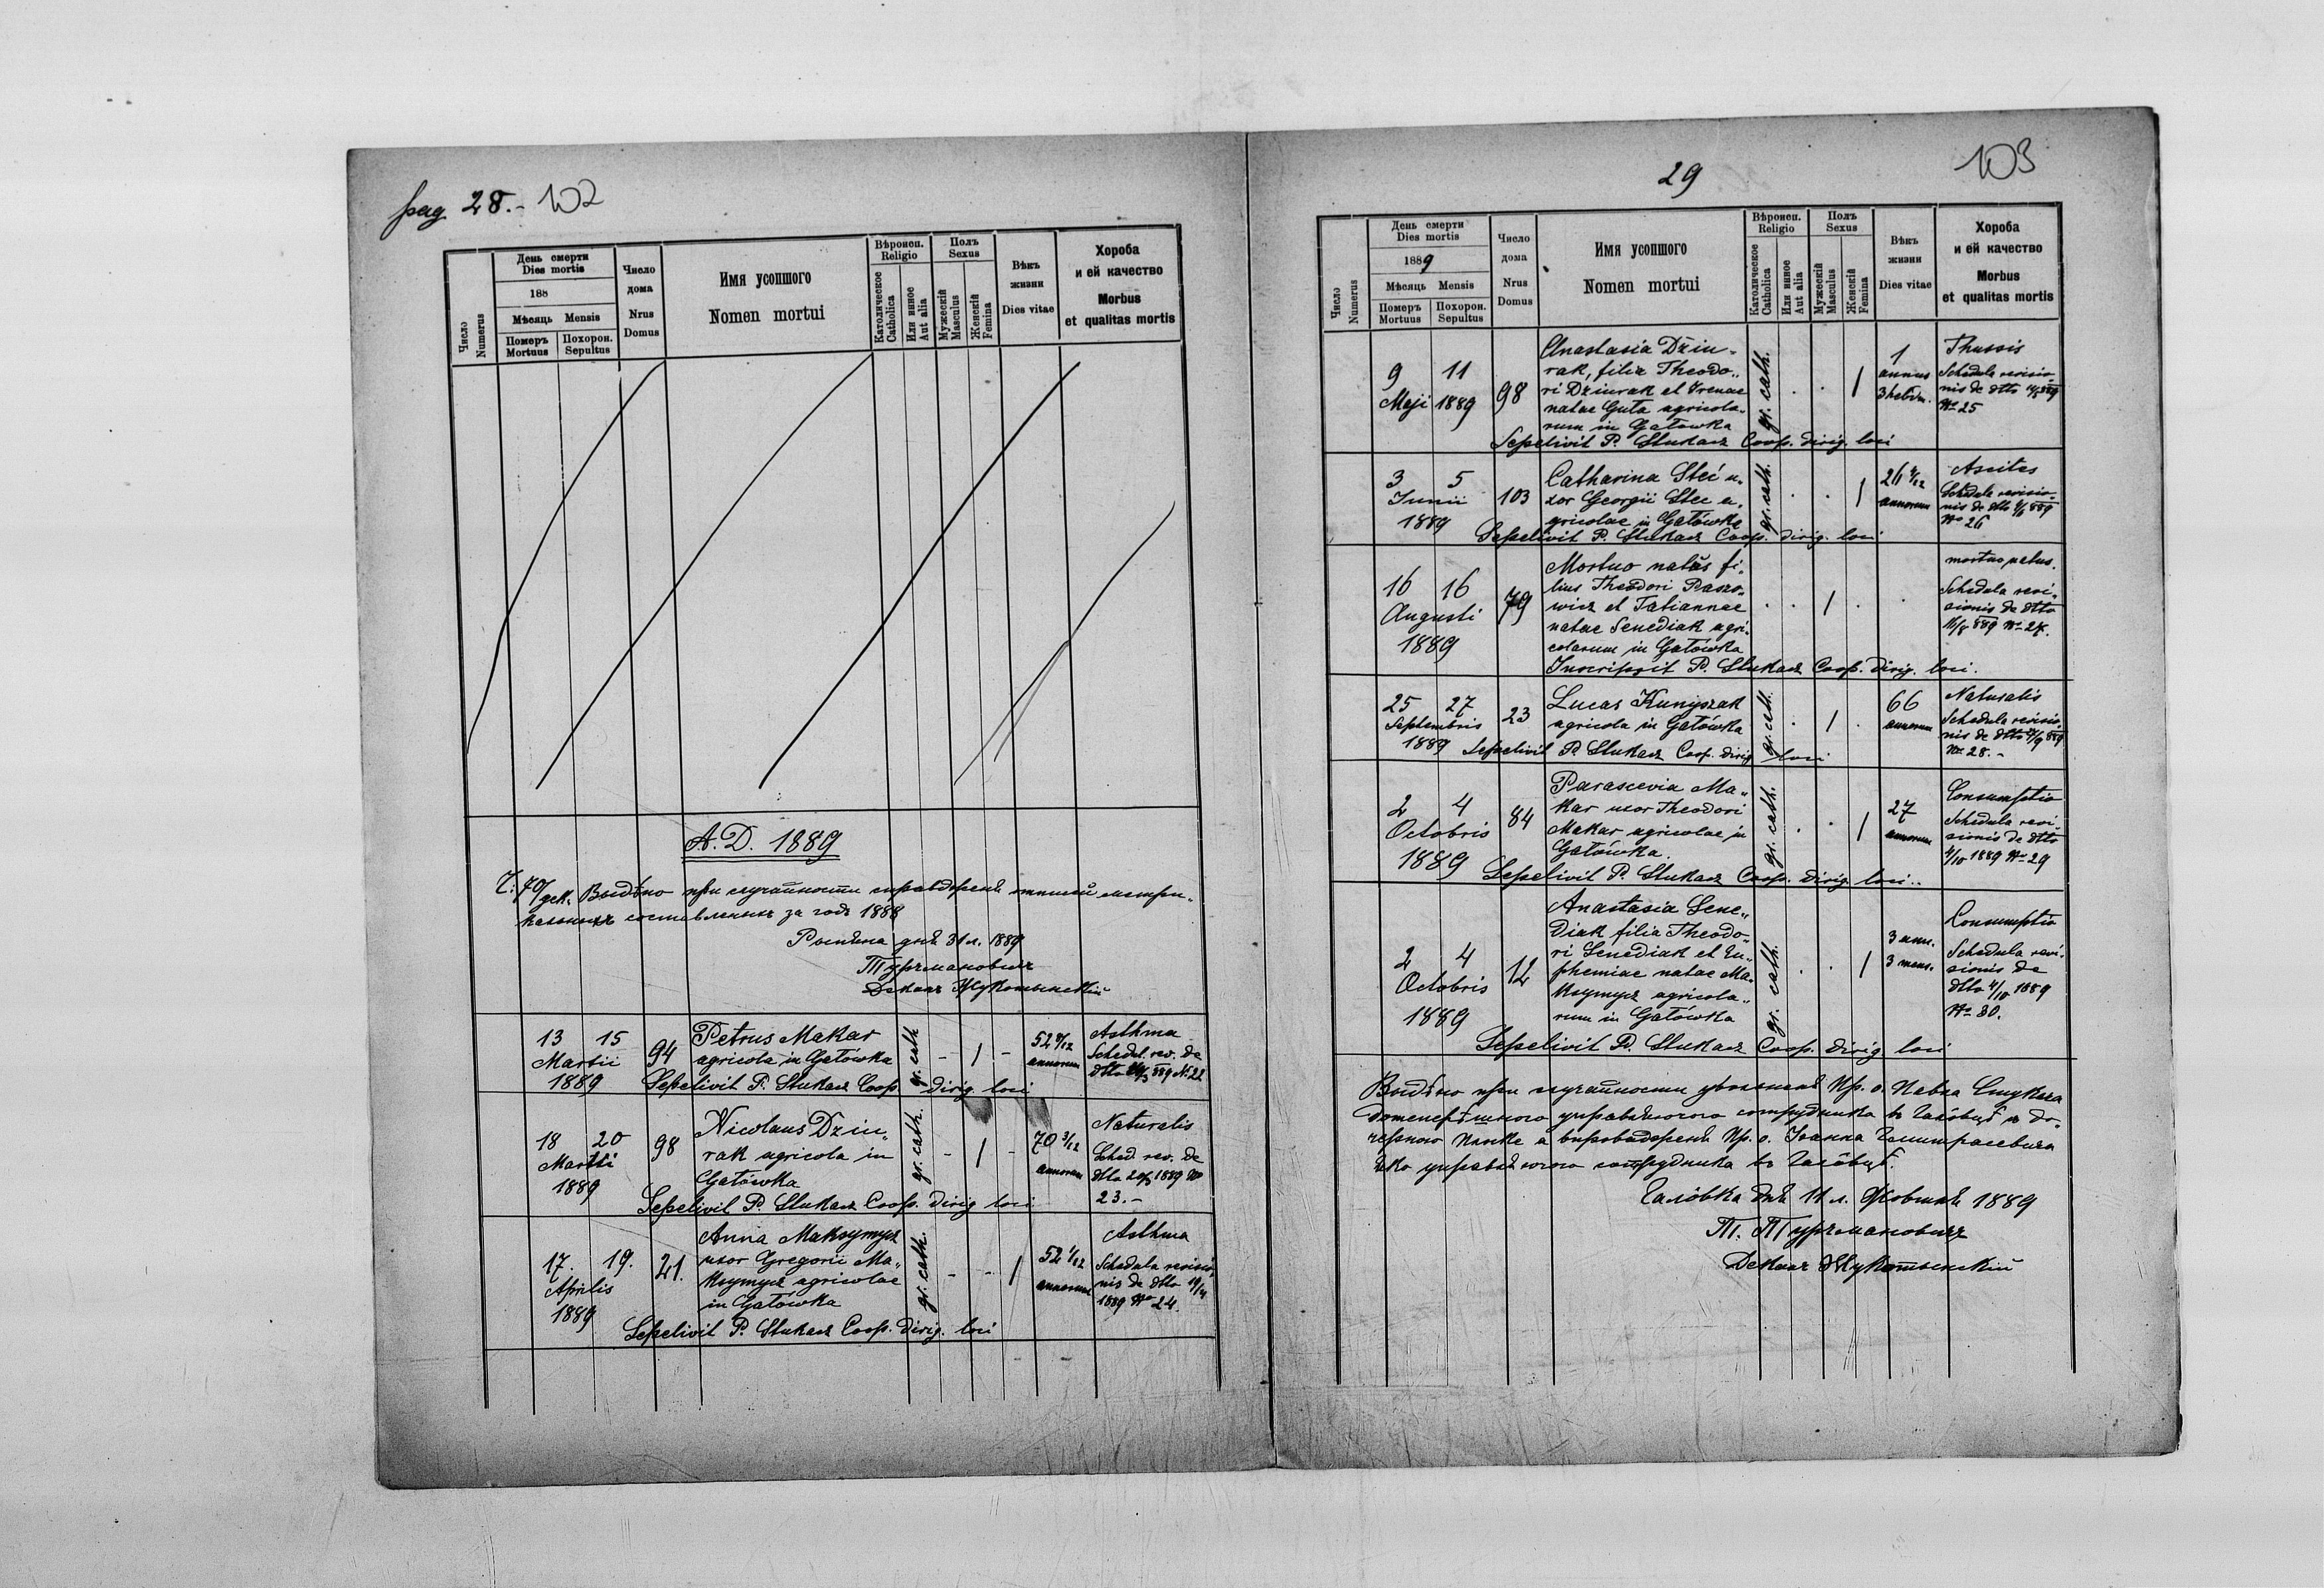 pag 28.- 102
Число
Numerus
День смерти
Dies mortis
188
Мѣсяць Mensis
Померъ
Mortuus
Похорон.
Sepultus
Число
дома
Nrus
Domus
Имя усопшого
Nomen mortui
Вѣроисп.
Religio
Католическое
Catholica
Или инное
Aut alia
Полъ
Sexus
Мужескій
Masculus
Женскій
Femina
Вѣкъ
жизни
Dies vitae
Хороба
и ей качество
Morbus
et qualitas mortis
A. D. 1889
Видѣно при случайности
за годъ 1888
днѣ 31 л. 1889
Турчмановичъ
Деканъ
13 15
Martii
1889
94
Petrus Makar
agricola in Gałówka
Sepelivit P. Stukacz Coop. dirig. loci
gr. cath
- 1 -
annorum
Asthma
Schedul. rev. de
dtto 889 No 22
18 20
Martii
1889
98
Nicolaus Dziu„
rak agricola in
Gałówka
Sepelivit P. Stukacz Coop. dirig. loci
gr. cath.
- 1 -
70 3/12
annorum
Naturalis
Sched. rev. de
dtto 20/3 1889 No
23.-
17. 19.
Aprilis
1889
21.
Anna Maksymycz
uxor Gregorii Ma„
ksymycz agricolae
in Gałówka
Sepelivit P. Stukacz Coop. dirig. loci
gr. cath.
- - 1
52 1/12
annorum
Asthma
Schedula revisio„
nis de dtto 19/4
1889 No 24.
29
103
Число
Numerus
День смерти
Dies mortis
1889
Мѣсяць Mensis
Померъ
Mortuus
Похорон.
Sepultus
Число
дома
Nrus
Domus
Имя усопшого
Nomen mortui
Вѣроисп.
Religio
Католическое
Catholica
Или инное
Aut alia
Полъ
Sexus
Мужескій
Masculus
Женскій
Femina
Вѣкъ
жизни
Dies vitae
Хороба
и ей качество
Morbus
et qualitas mortis
9 11
Maji 1889
98
Anastasia Dziu„
rak, filia Theodo„
ri Dziurak et Irenae
natae Guła agricola„
rum in Gałówka
Sepelivit P. Stukacz Coop. dirig. loci
gr. cath.
. . 1
1
annus
3 hebdm.
Thussis
Schedula revisio„
nis de dtto 11/5 889
No 25
3 5
Junii
1889
103
Catharina Steć u„
xor Georgii Stec a„
gricolae in Gałówka
Sepelivit P. Stukacz Coop. dirig. loci
gr. cath.
. . 1
annorum
Ascites
Schedula revisio„
nis de dtto 889
No 26
16 16
Augusti
1889
79
Mortuo natus fi„
lius Theodori Paszo„
wicz et Tatiannae
natae Senediak agri„
colarum in Gałówka
Inscripsit P. Stukacz Coop. dirig. loci.
. . 1 . .
mortuo natus.
Schedula revi„
sionis de dtto
16/8 889 No 27.
25 27
Septembris
1889
23
Lucas Kunyszak
agricola in Gałówka
Sepelivit P. Stukacz Coop. dirig. loci
gr. cath.
. 1 .
66
annorum
Naturalis
Schedula revisio„
nis de dtto 889
No 28.-
2 4
Octobris
1889
84
Parascevia Ma„
kar uxor Theodori
Makar agricolae in
Gałówka.
Sepelivit P. Stukacz Coop. dirig. loci..
gr. cath.
. . 1
27
annorum
Consumptio
Schedula revi„
sionis de dtto
4/10 1889 No 29
2 4
Octobris
1889
12
Anastasia Sene„
diak filia Theodo„
ri Senediak et Eu„
phemiae natae Ma„
ksymycz agricola„
rum in Gałówka
Sepelivit P. Stukacz Coop. dirig. loci
gr. cath.
. . 1
3 ann.
3 mens.
Consumptio
Schedula revi„
sionis de
dtto 4/10 1889
No 30.
Видѣно при случайности Пр. о. Павла Стукача
сотрудника въ
Пр. о. Іоанна
яко сотрудника въ Галôвцѣ.
Галôвка днѣ 11 л. Жовтня 1889
Т. Турчмановичъ
Деканъ